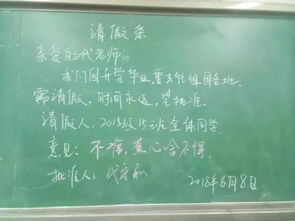 请假条
亲爱的代老师
我们因升学毕业,要去往祖国各地.
需请假,时间永远,望批准.
请假人:2015级15班全体同学.
意见:不准,蕙心舍不得.
批准人:代
2018年6月8日.